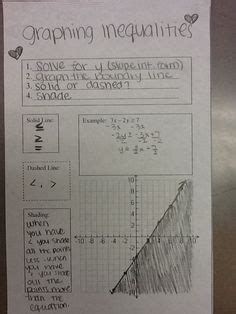 graphing inequalities
1. solve for y (slope int. form)
2. graph the boundry line
3. solid or dashed?
4. shade
Solid Line:
≤
≥
=
Example: 3x - 2y ≥ 7
-3x -3x
-2y ≥ -3x+7
-2 -2 -2
Dashed Line:
< , >
Shading:
when
you have
< you shade
all the points
less - when
you have
> you shade
all the
points more
than the
equation.
10
8
6
4
2
-10 -8 -6 -4 -2 2 4 6 8 10
-2
-4
-6
-8
-10